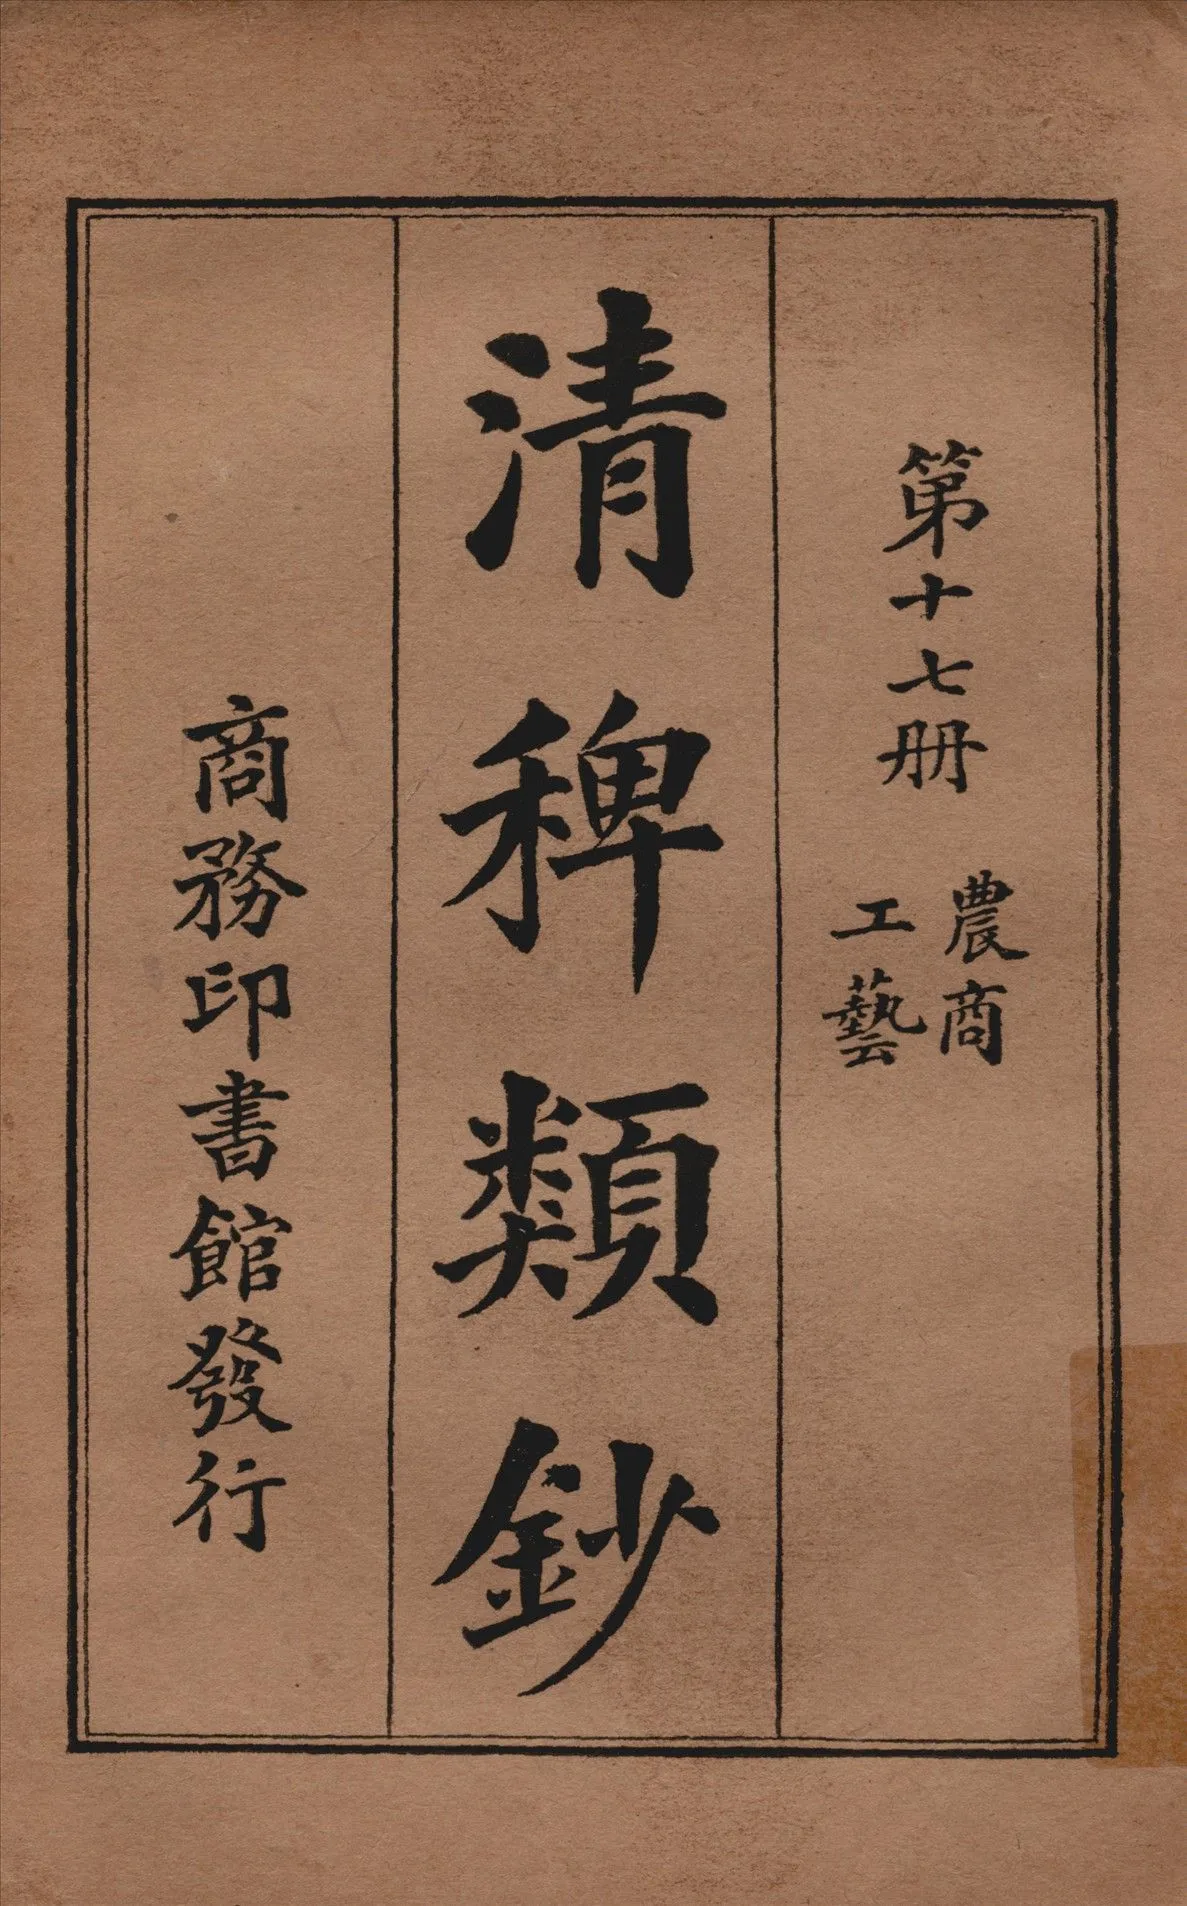 第十七册
農商
工藝
清稗類鈔
商務印書館發行